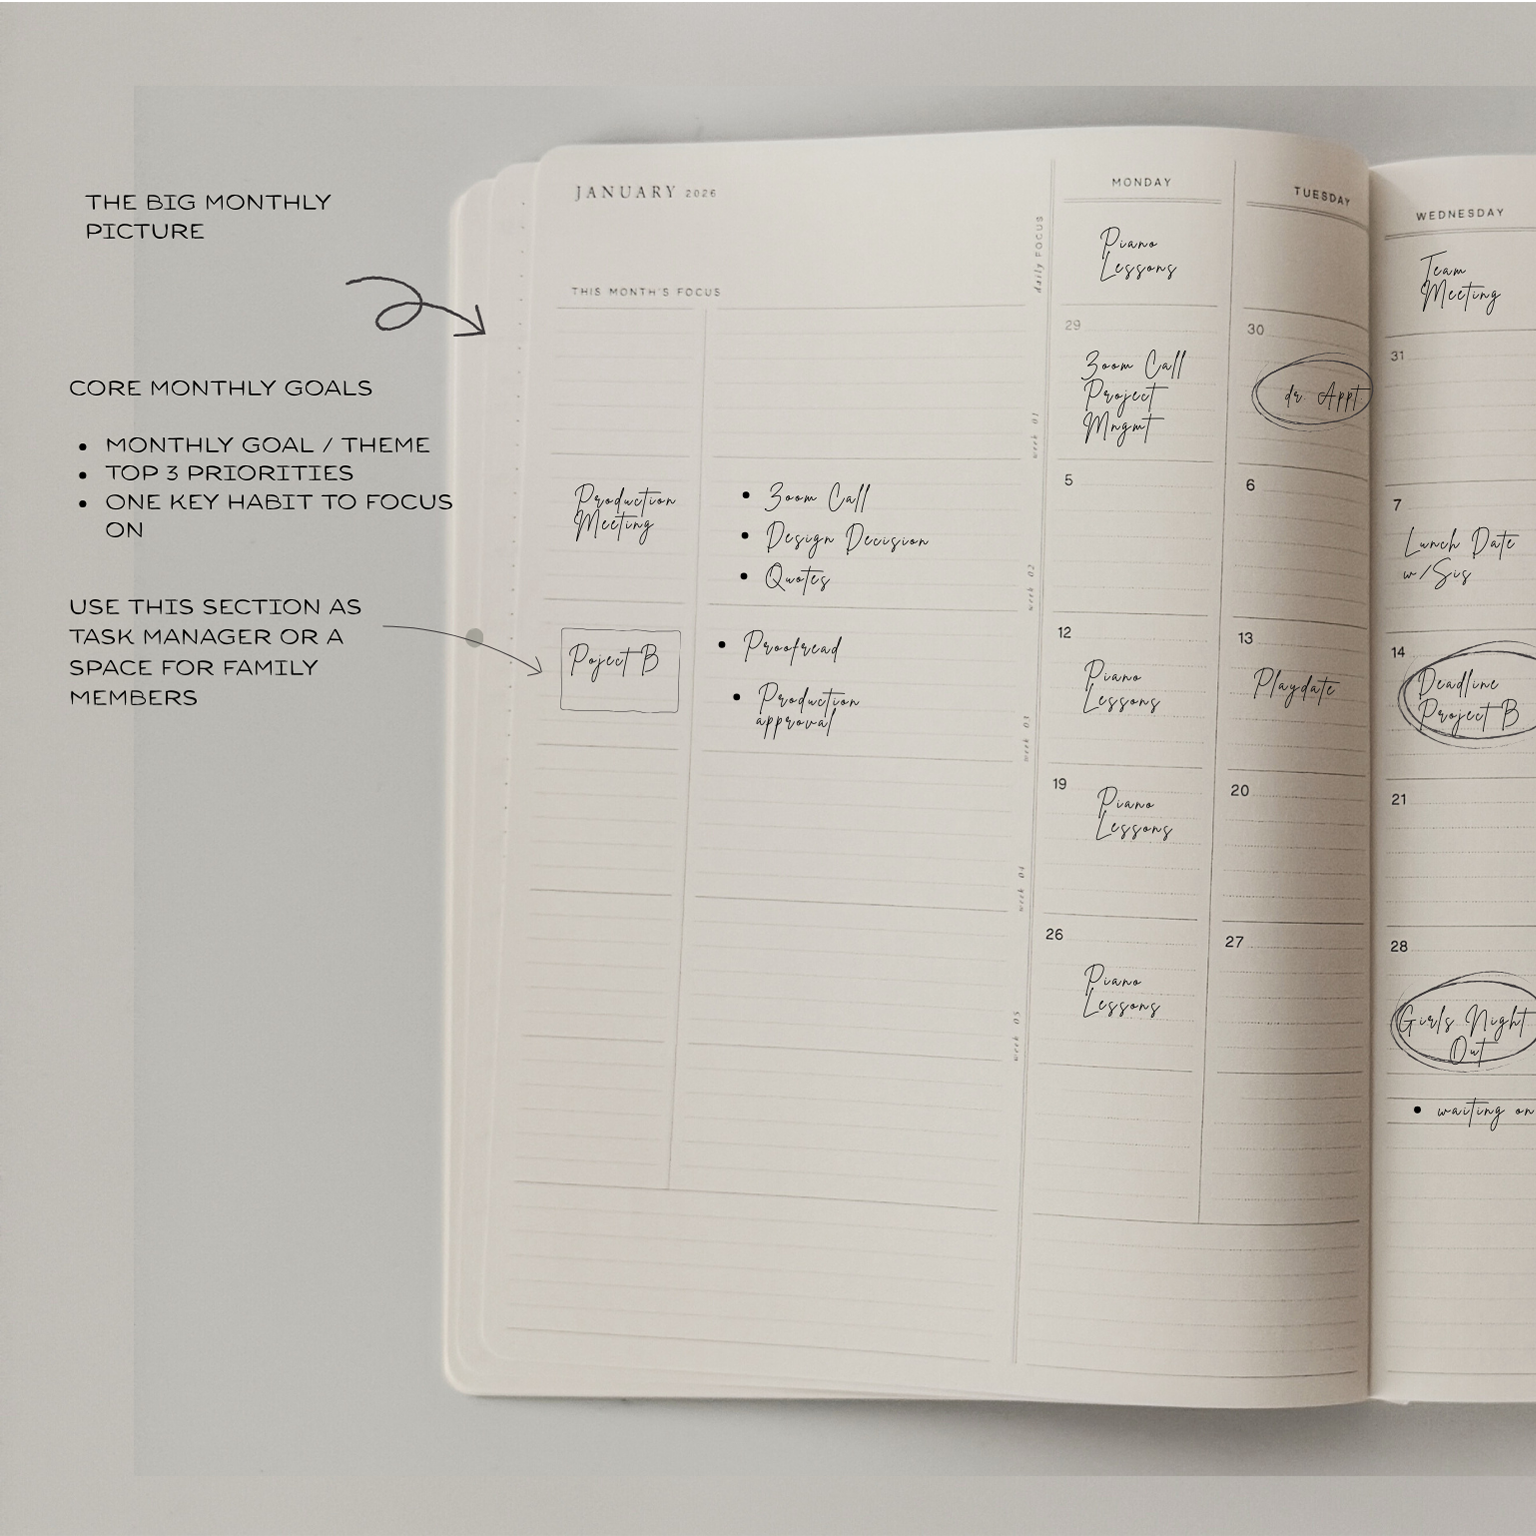 THE BIG MONTHLY
PICTURE
CORE MONTHLY GOALS
• MONTHLY GOAL / THEME
• TOP 3 PRIORITIES
• ONE KEY HABIT TO FOCUS
ON
USE THIS SECTION AS
TASK MANAGER OR A
SPACE FOR FAMILY
MEMBERS
JANUARY 2026
THIS MONTH'S FOCUS
Production
Meeting
• Zoom Call
• Design Decision
• Quotes
Poject B
• Proofread
• Production
approval
daily FOCUS
week 01
week 02
week 03
week 04
week 05
MONDAY
Piano
Lessons
29
Zoom Call
Project
Mngmt
5
12
Piano
Lessons
19
Piano
Lessons
26
Piano
Lessons
TUESDAY
30
dr. Appt
6
13
Playdate
20
27
WEDNESDAY
Team
Meeting
31
7
Lunch Date
w/Sis
14
Deadline
Project B
21
28
Girls Night
Out
• waiting on